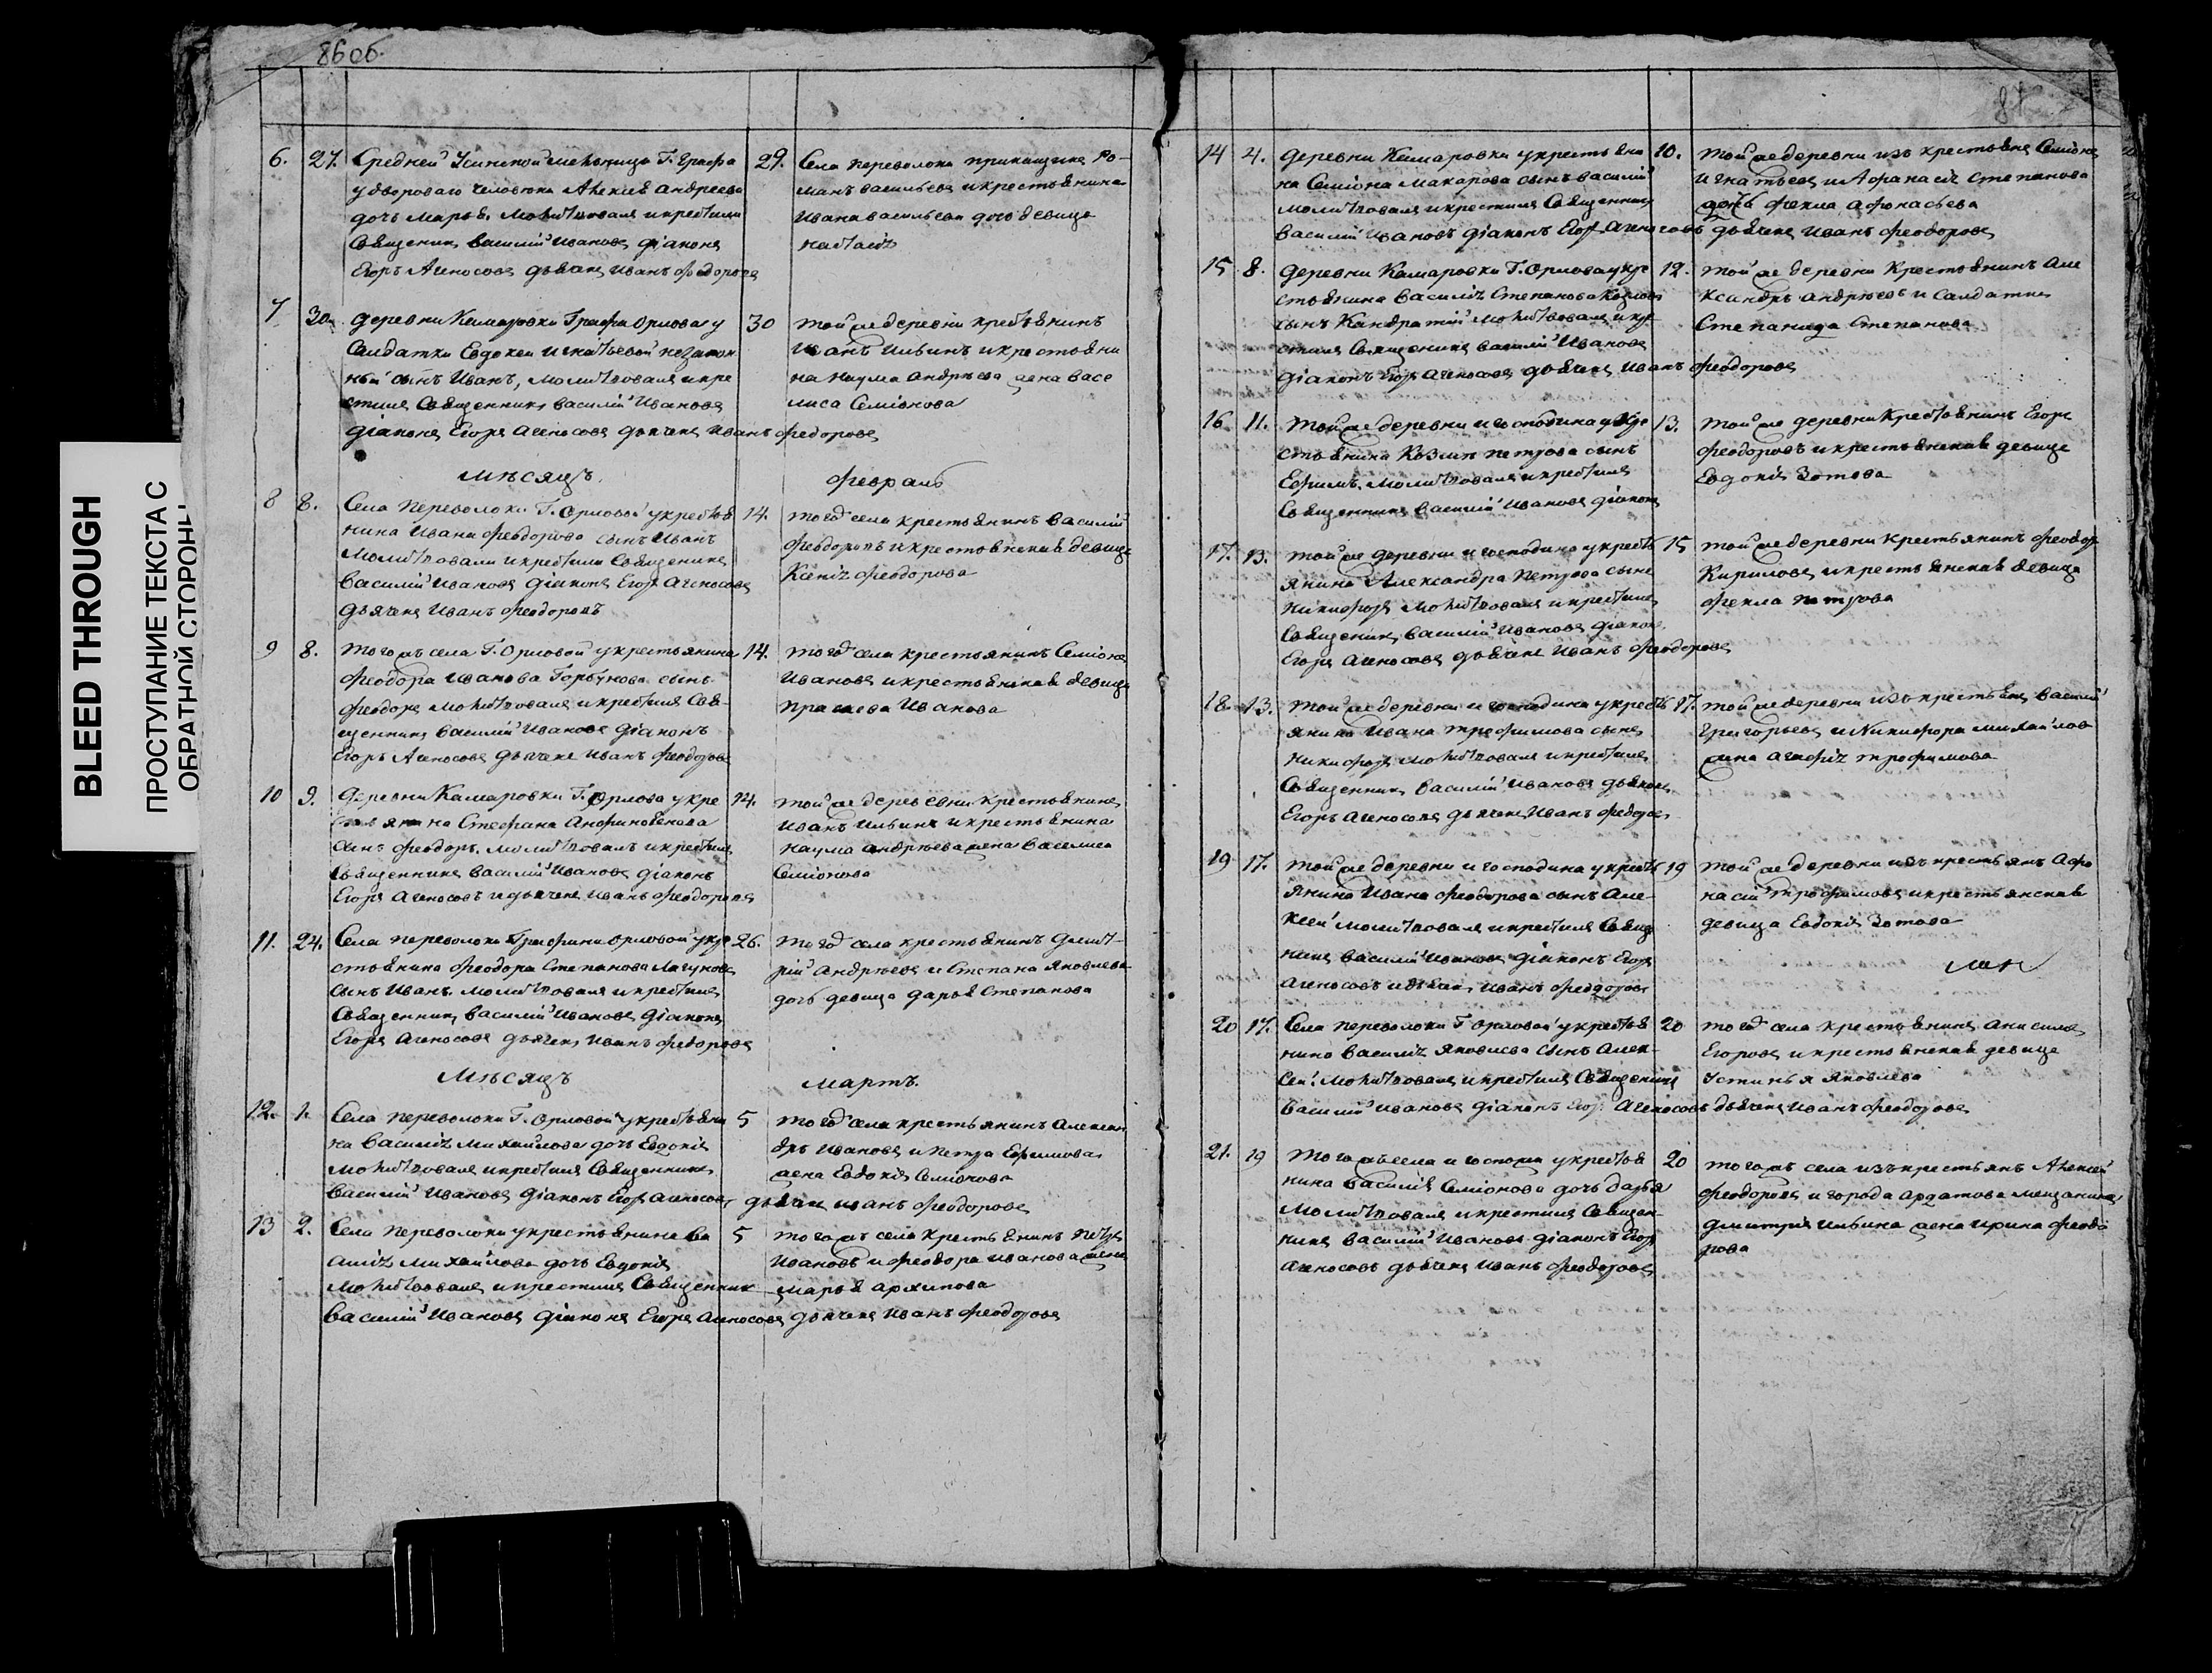 BLEED THROUGH
ПРОСТУПАНИЕ ТЕКСТА С
ОБРАТНОЙ СТОРОНЫ
86 об.
6. 27. Средней Усинской мельницы Г. Графа
у двороваго человека Алексея Андреева
дочь Марья. Молитвовалъ и крестилъ
Священникъ Василий Ивановъ діаконъ
Егоръ Агносовъ дьячекъ Иванъ Феодоровъ
29. Села Переволоки прикащикъ Ро-
манъ Васильевъ и крестьянина
Ивана Васильева дочь девица
Настасія
7 30. Деревни Камаровки Графа Орлова у
Салдатки Евдокеи Игнатьевой незакон
ный сынъ Иванъ, молитвовалъ и кре
стилъ Священникъ Василий Ивановъ
діаконъ Егоръ Агносовъ дьячекъ Иванъ Феодоровъ
30 той же деревни крестьянинъ
Иванъ Ильинъ и крестьяни
на Наума Андрѣева жена Васе
лиса Семіонова
мѣсяцъ. Февраль
8 8. Села Переволоки Г. Орловой у крестья
нина Ивана Феодорова сынъ Иванъ
молитвовали и крестили Священникъ
Василий Ивановъ діаконъ Егоръ Агносовъ
дьячекъ Иванъ Феодоровъ
14. того села крестьянинъ Василий
Феодоровъ и крестьянская девица
Ксенія Феодорова
9 8. Того жъ села Г. Орловой у крестьянина
Феодора Иванова Горбунова сынъ
Феодоръ молитвовалъ и крестилъ Свя-
щенникъ Василий Ивановъ діаконъ
Егоръ Агносовъ дьячекъ Иванъ Феодоровъ
14. того села крестьянинъ Семіонъ
Ивановъ и крестьянская девица
Прасковья Иванова
10 9. Деревни Камаровки Г. Орлова у кре
стьянина Стефана Анфиногенова
сынъ Феодоръ. молитвовалъ и крестилъ
Священникъ Василий Ивановъ діаконъ
Егоръ Агносовъ и дьячекъ Иванъ Феодоровъ
14. той же деревни крестьянинъ
Иванъ Ильинъ и крестьянина
Наума Андрѣева жена Васелиса
Семіонова
11. 24. Села Переволоки Графини Орловой у кре
стьянина Феодора Степанова Лагунова
сынъ Иванъ. молитвовалъ и крестилъ
Священникъ Василий Ивановъ діаконъ
Егоръ Агносовъ дьячекъ Иванъ Феодоровъ
26. того села крестьянинъ Дмит-
рій Андрѣевъ и Степана Яковлева
дочь девица Дарья Степанова
Мѣсяцъ Мартъ.
12. 1. Села Переволоки Г. Орловой у крестьяни
на Василія Михайлова дочь Евдокія
молитвовалъ и крестилъ Священникъ
Василий Ивановъ діаконъ Егоръ Агносовъ дьячекъ Иванъ Феодоровъ
5 того села крестьянинъ Алексан
дръ Ивановъ и Петра Ефимова
жена Евдокія Семіонова
13 2. Села Переволоки у крестьянина Ва
силія Михайлова дочь Евдокія
молитвовалъ и крестилъ Священникъ
Василий Ивановъ діаконъ Егоръ Агносовъ дьячекъ Иванъ Феодоровъ
5 того жъ села крестьянинъ Петръ
Ивановъ и Феодора Иванова жена
Марья Архипова
87
14 4. Деревни Камаровки у крестьяни
на Семіона Макарова сынъ Василий
молитвовалъ и крестилъ Священникъ
Василий Ивановъ діаконъ Егоръ Агносовъ дьячекъ Иванъ Феодоровъ
10. той же деревни изъ крестьянъ Семіонъ
Игнатьевъ и Афанасія Степанова
дочь Фекла Афонасьева
15 8. Деревни Камаровки Г. Орлова у кре
стьянина Василія Степанова Козлова
сынъ Кандратий молитвовалъ и кре
стилъ Священникъ Василий Ивановъ
діаконъ Егоръ Агносовъ дьячекъ Иванъ Феодоровъ
12. той же деревни крестьянинъ Але
ксандръ Андрѣевъ и Салдатка
Степанида Степанова
16 11. Той же деревни и господина у кре
стьянина Козми Петрова сынъ
Ефимъ. молитвовалъ и крестилъ
Священникъ Василий Ивановъ діаконъ
13. той же деревни крестьянинъ Егоръ
Феодоровъ и крестьянская девица
Евдокія Зотова
17. 13. той же деревни и господина у кресть
янина Александра Петрова сынъ
Никифоръ молитвовалъ и крестилъ
Священникъ Василий Ивановъ діаконъ
Егоръ Агносовъ дьячекъ Иванъ Феодоровъ
15 той же деревни крестьянинъ Феодоръ
Кириловъ и крестьянская девица
Фекла Петрова
18 13. той же деревни и господина у кресть
янина Ивана Трефимова сынъ
Никифоръ молитвовалъ и крестилъ
Священникъ Василий Ивановъ дьяконъ
Егоръ Агносовъ дьячекъ Иванъ Феодоровъ
17. той же деревни изъ крестьянъ Василий
Григорьевъ и Никифора Михайлова
жена Агафія Трофимова
19 17. той же деревни и господина у кресть
янина Ивана Феодорова сынъ Але-
ксей молитвовалъ и крестилъ Священ
никъ Василий Ивановъ діаконъ Егоръ
Агносовъ и дьячекъ Иванъ Феодоровъ
19 той же деревни изъ крестьянъ Афо
насій Трофимовъ и крестьянская
девица Евдокія Зотова
20 17. Села Переволоки Г. Орловой у крестья
нина Василія Яковлева сынъ Алек-
сей. молитвовалъ и крестилъ Священникъ
Василий Ивановъ діаконъ Егоръ Агносовъ дьячекъ Иванъ Феодоровъ
20 того села крестьянинъ Анисимъ
Егоровъ и крестьянская девица
Устинья Яковлева
21. 19 Того жъ села и госпожи у крестья
нина Василія Семіонова дочь Дарья
молитвовалъ и крестилъ Священ-
никъ Василий Ивановъ діаконъ Егоръ
Агносовъ дьячекъ Иванъ Феодоровъ
20 того жъ села изъ крестьянъ Алексей
Феодоровъ и города Ардатова мещанина
Дмитрія Ильина жена Ирина Феодо
рова